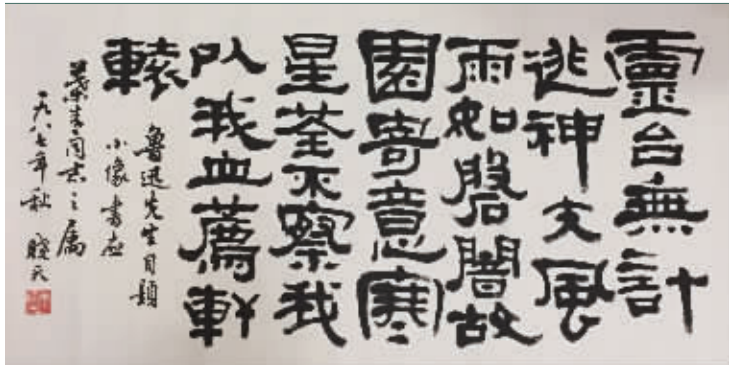 靈台無計
逃神矢風
雨如磐闇故
園寄意寒
星荃不察我
以我血薦軒
轅
魯迅先生自題
小像書應
同志之屬
一九八七年秋 曉天